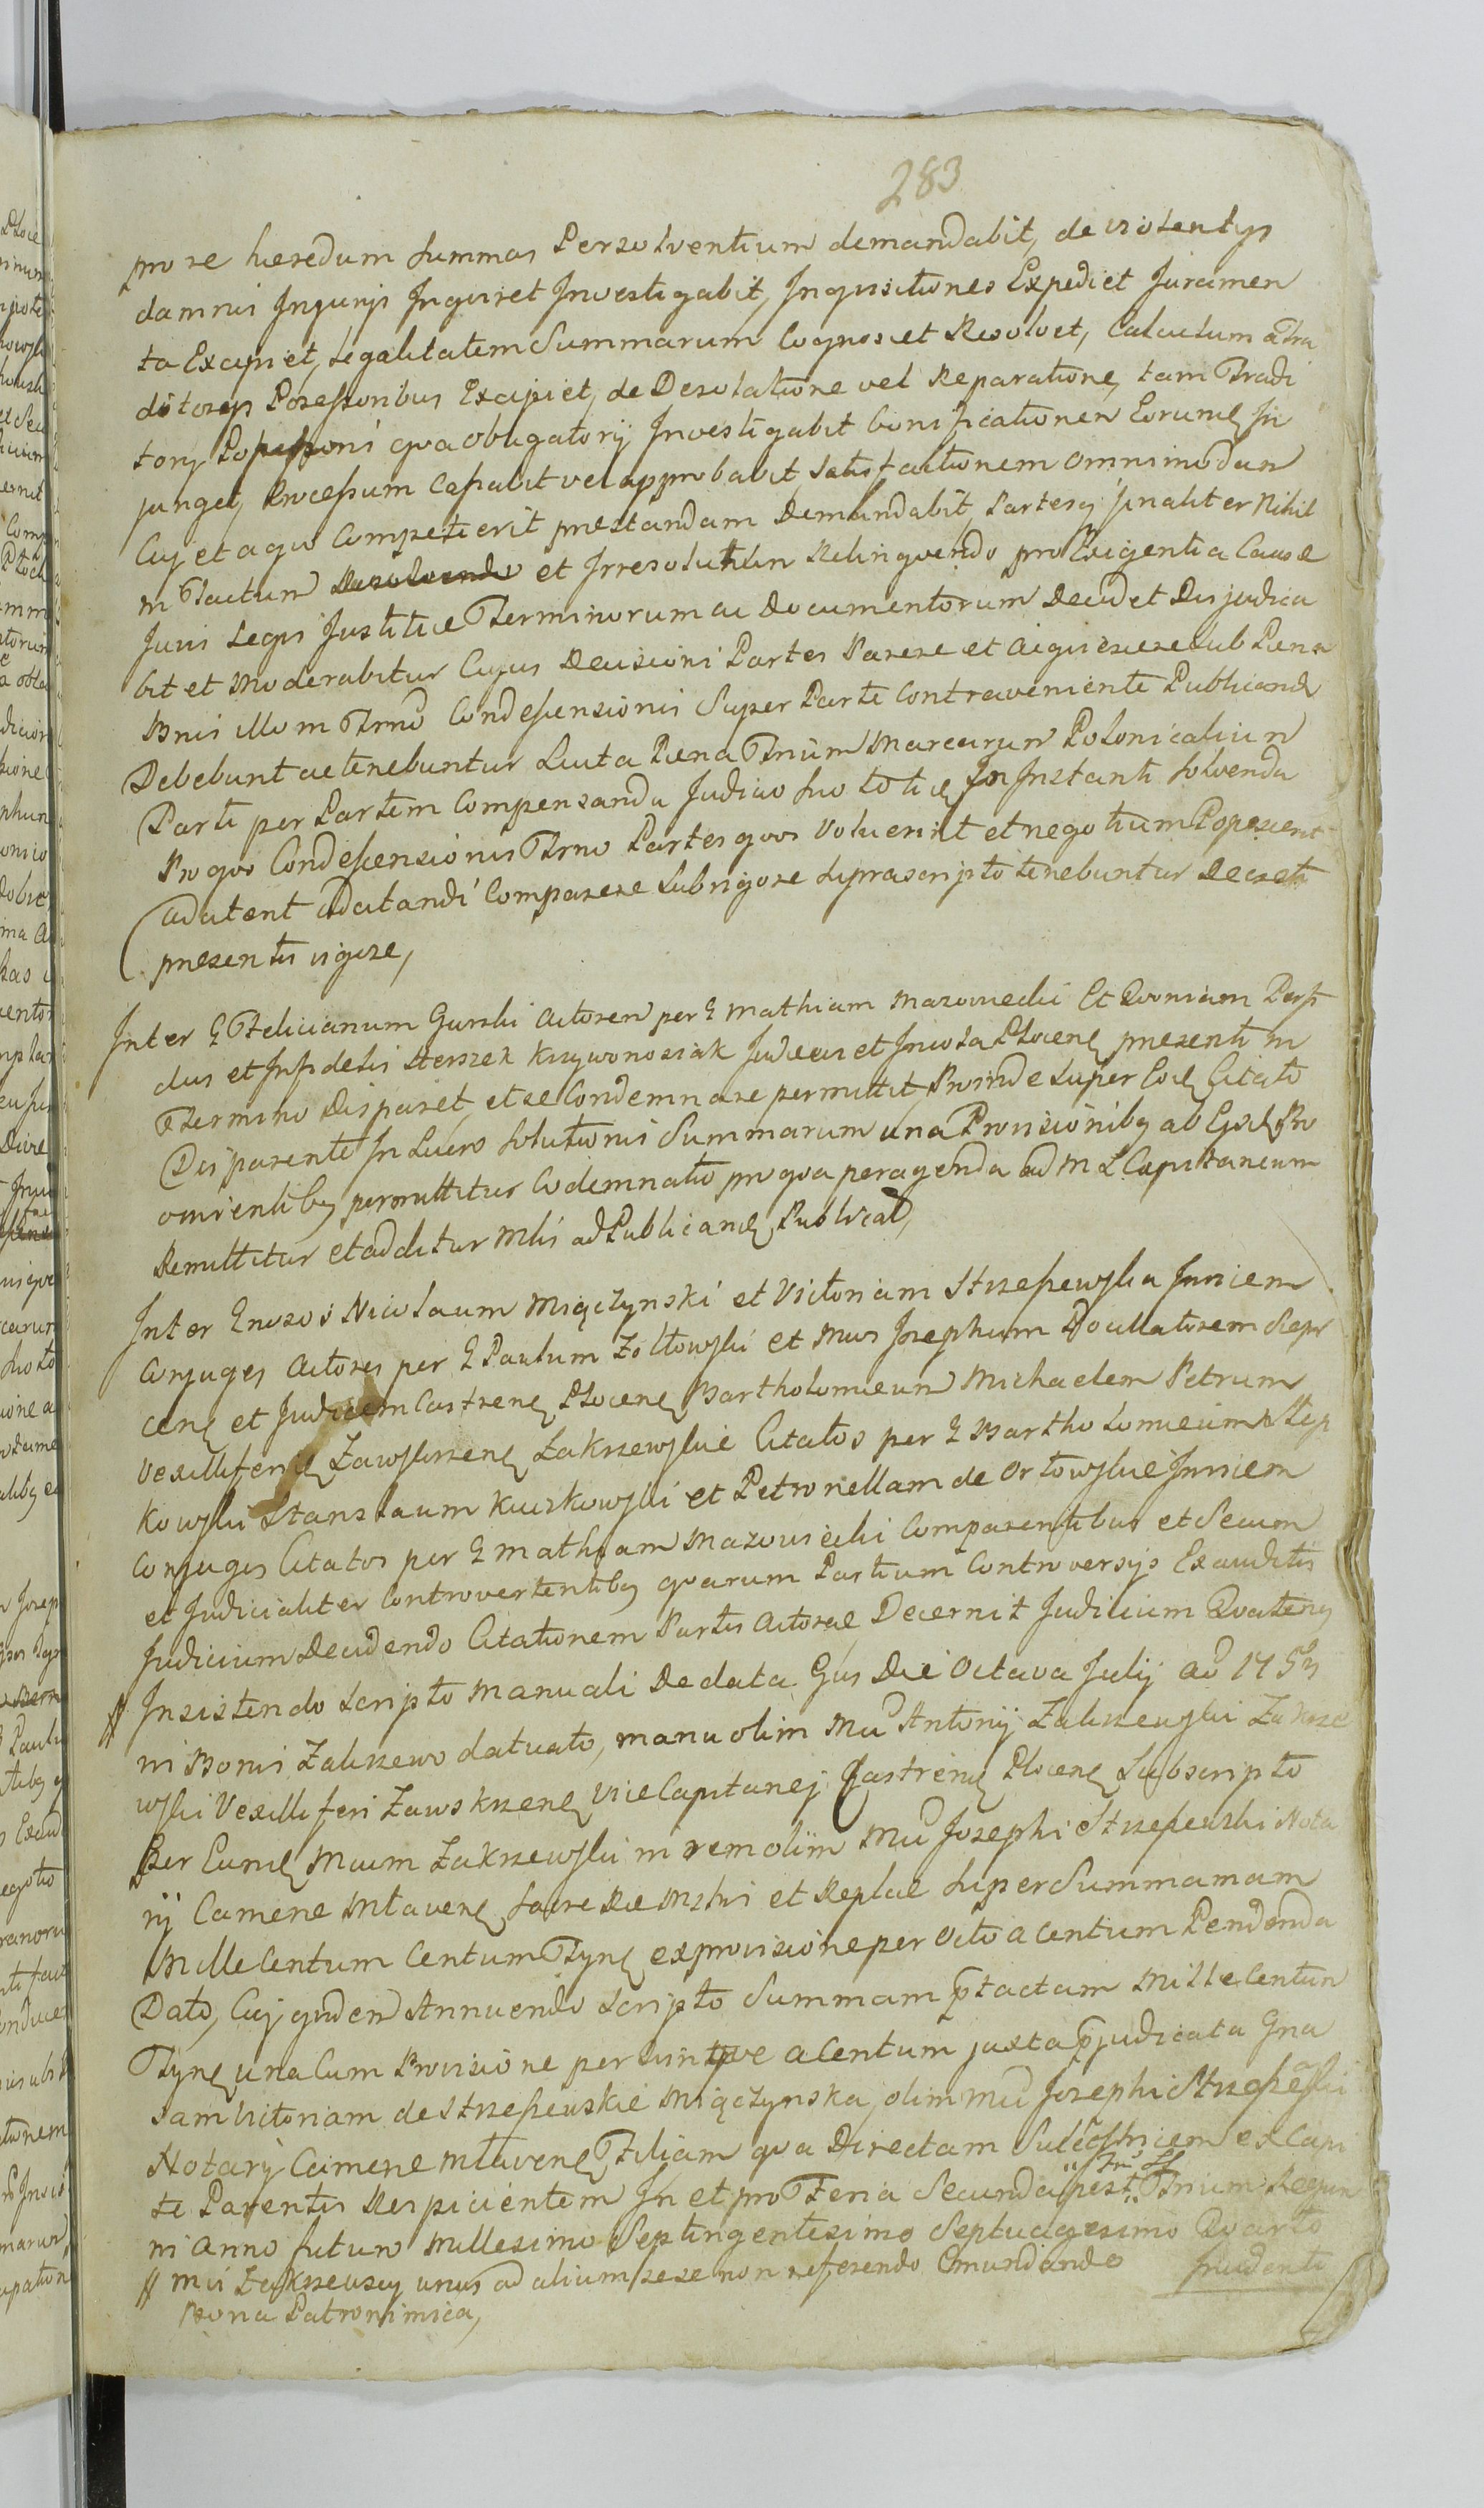 283
pro re hæredum Summas Persolventium demandabit, de violentys
damnis Injurys Inquiret Investigabit, Inquisitiones Expediet Juramen
ta Excipiet, Legalitatem Summarum Cognoscet Resolvet, Calculum a Tra
ditorys Possessoribus Excipiet, de Desolatione vel Reparatione, tam Tradi
tory Possessoni qva obligatorij Investigabit bonificationem Eorumq In
junget, Processum Cassabit vel approbabit, Satisfactionem omnimodam
Cuj et a quo Competierit præstandam Demandabit, Partesq finaliter Nihil
in Tactum et Irresolutum Relinquendo pro Exigentia Causæ
Juris Legis Justitiæ Terminorum ac Documentorum Decidet Disjudica
bit et Moderabitur Cujus Decisioni Partes Parere et Acquiescere Sub Pæna
Bnis illo in Trmo Condescensionis Super Parte Contraveniente Publicanda
Debebunt ac tenebuntur Luita Pæna Trium Marcarum Polonicalium
Parti per Partem Compensanda Judicio Suo toties In Instanti Solvenda
Pro quo Condescensionis Trmo Partes quos Voluerint et negotium Poposcerit
adcitent adcitandi Comparere Sub rigore Suprascripto tenebuntur Decreti
præsentis vigore,
Inter G Felicianum Gurski Actorem per G Mathiam Mazowiecki Et Qvoniam Perfi
dus et Infidelis Herszek Krzywonosiak Judæus et Incola Plocenq præsenti in
Termino Disparet, et se Condemnare permittit, Proinde Super Eoq Citato
Disparente In Lucro Solutionis Summarum una Provisionibq ab Ejsd Pro
venientibq permittitur Codemnatio pro qva peragenda ad M L Capitaneum
Remittitur et additur Mlis ad Publicandq Publicat,
Inter Gnosos Nicolaum Miączynski et Victoriam Strzeszewska Invicem
Conjuges Actores per G Paulum Zołtowski et Mcos Josephum Pocillatorem Sierp
cenq et Judicem Castrenq Plocenq Bartholomæum Michaelem Petrum
Vexilliferiq Zawskrzenq Zakrzewskie Citatos per G Bartholomæum Stęp
kowski Stanslaum Kuczkowski et Petronellam de Orłowskie Invicem
Conjuges Citatos per G Mathiam Mazowiecki Comparentibus et Secum
et Judicialiter Controvertentibq qvarum Partium Controversys Exauditis
Judicium Decidendo Citationem Partis Actoræ Decernit Judicium Qvatenq
Insistendo Scripto Manuali De data Gus Die Octava Julij Ao 1753
in Bonis Zakrzewo datuato, manu olim Mci Antonij Zakrzewski Zakrze
wski Vexilliferi Zawskrzenq Vice Capitanej Castrenq Plocenq Subscripto
Per Eumq Mcum Zakrzewski in rem olim Mci Josephi Strzeszewski Nota
rij Cameræ Mlavenq Sacræ Ræ Mstis et Replæ Super Summam
Mille Centum Centum Tynq ex provisione per octo a Centum Pendenda
Dato, Cuj qvidem Annuendo Scripto Summam ptactam Mille Centum
Tynq una Cum Provisione per a Centum juxta pjudicata Gna
sam Victoriam de Strzeszewskie Miączynska, olim Mci Josephi Strzeszewski
Notary Cameræ Mlavenq Filiam qva Directam Successtricem ex Capi
te Parentis Respicientem In et pro Feria Secunda post Ftm SS Trium Regum
in Anno futuro Millesimo Septingentesimo Septuagesimo Qvarto
Mci Zakrzewscy unus ad alium sese non referendo Emundando
Bona Patronimica,